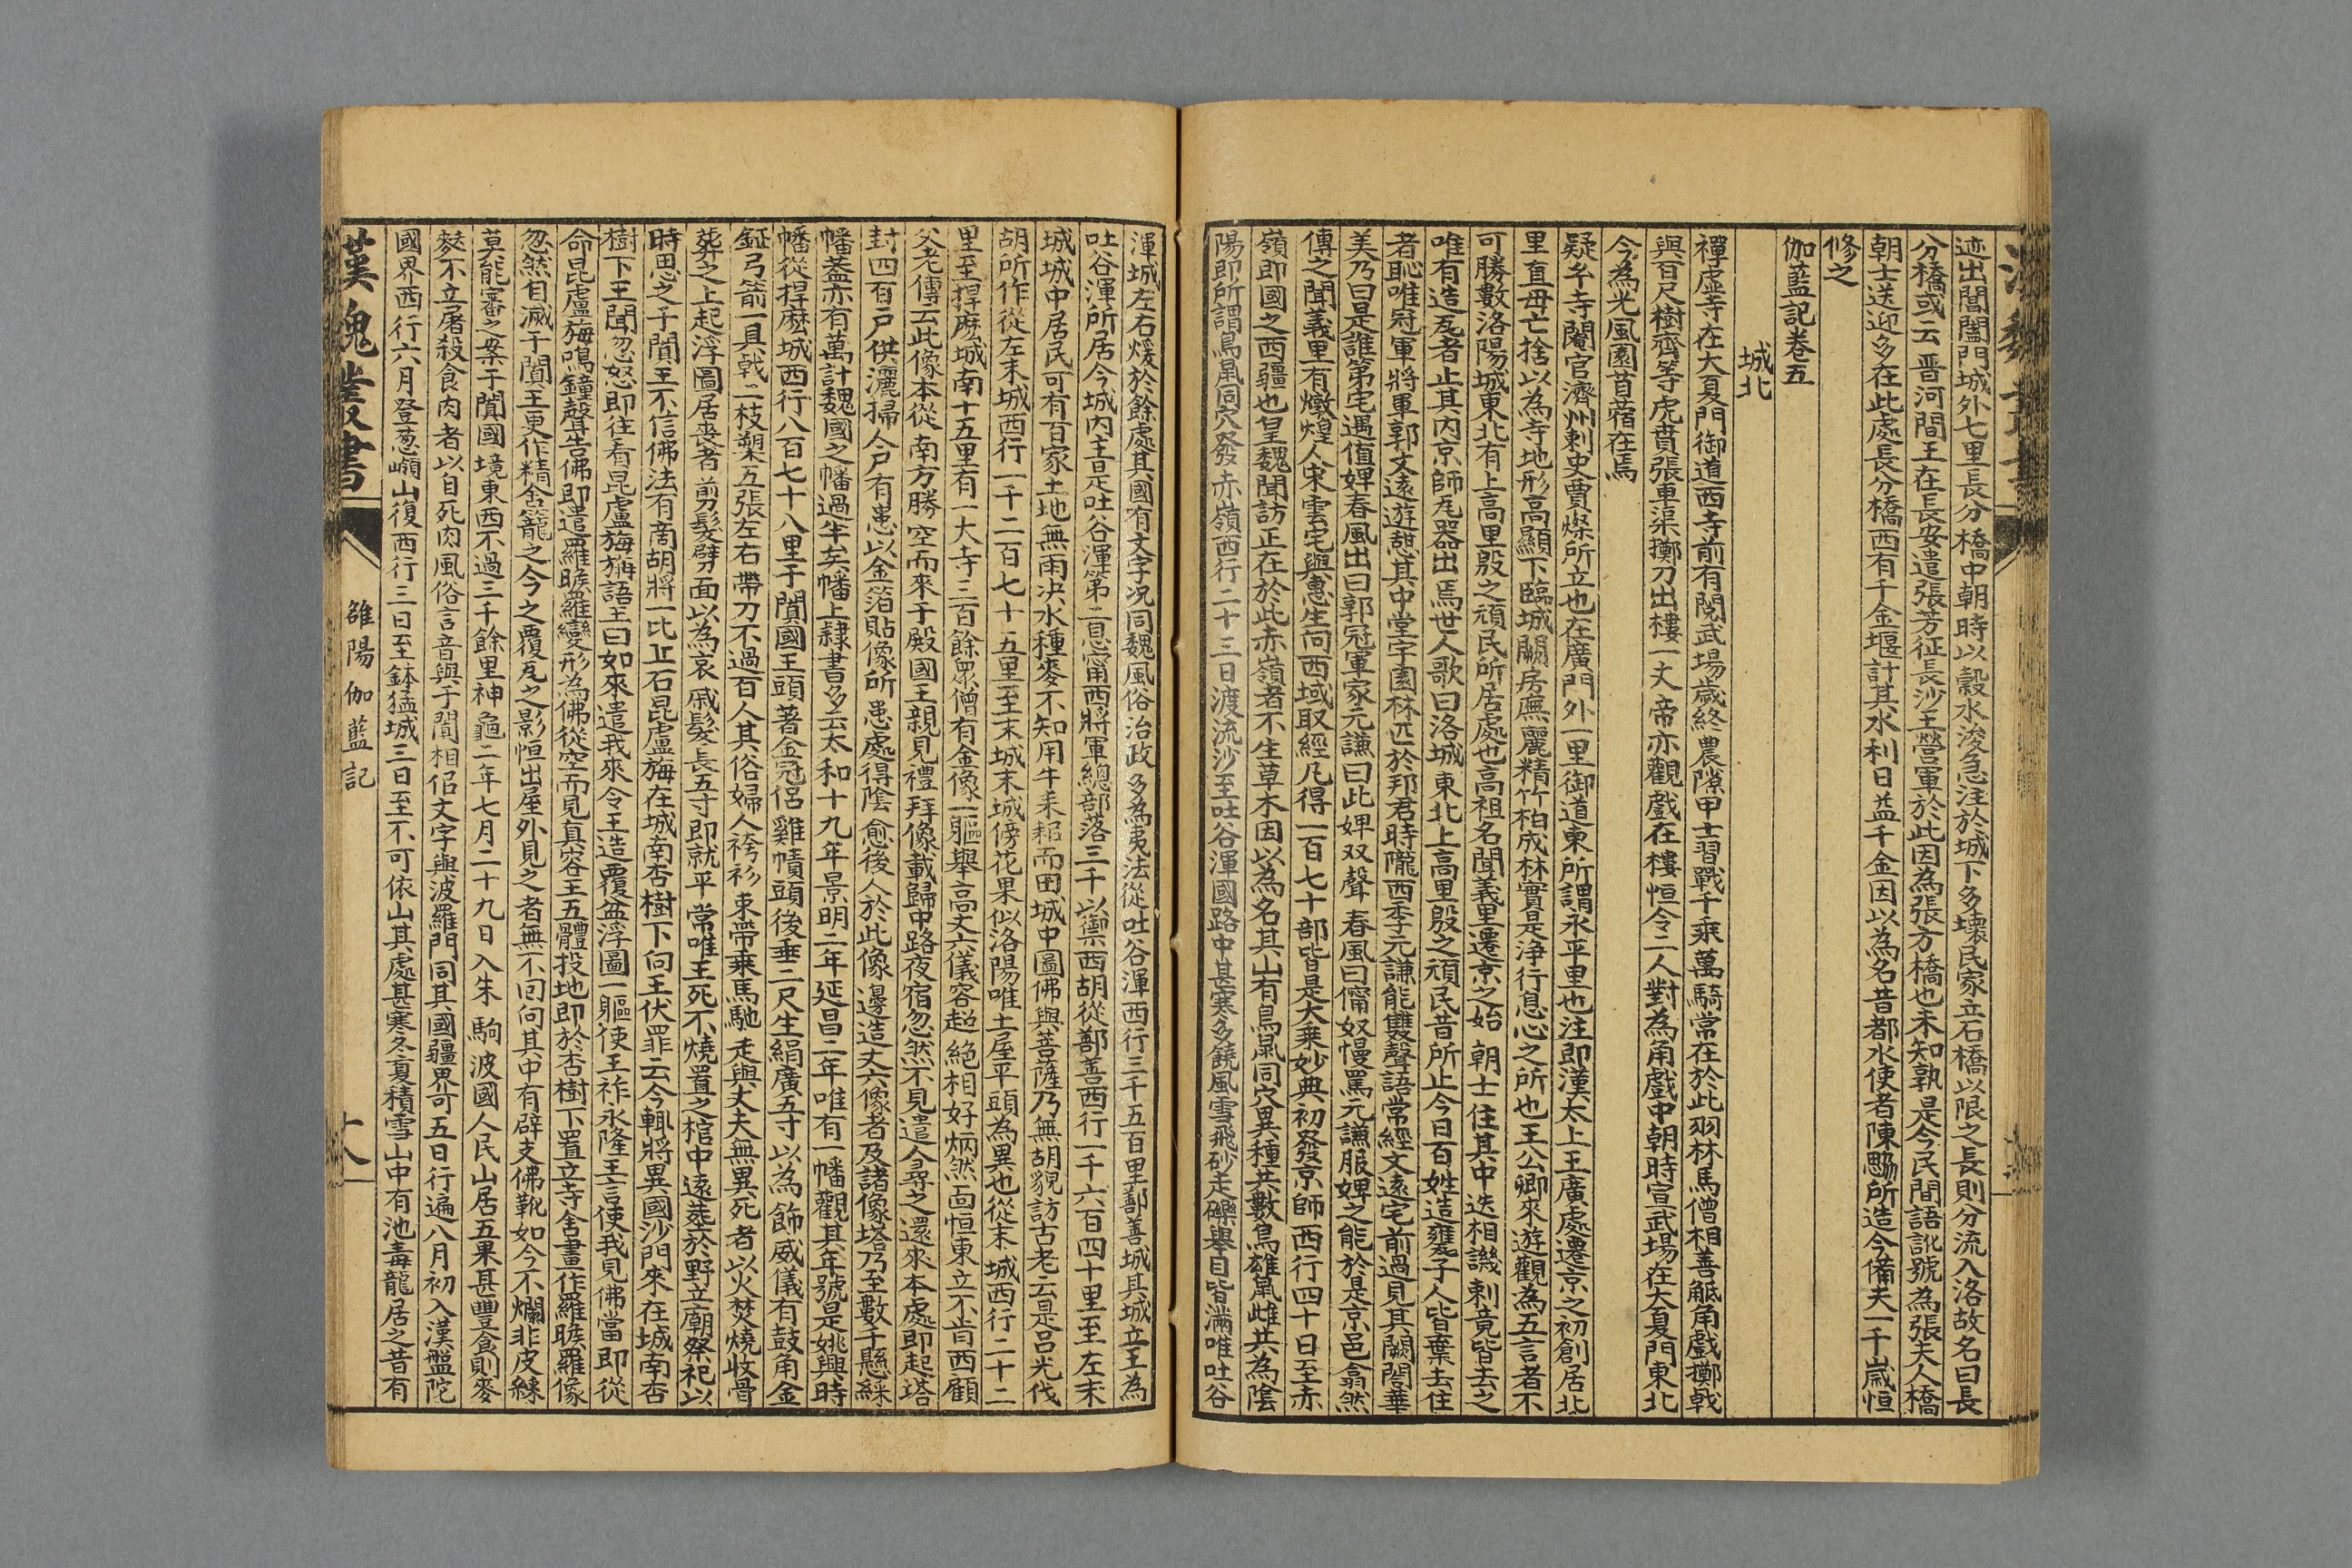 迹出閶闔門城外七里長分橋中朝時以穀水浚急注於城下多壞民家立石橋以限之長則分流入洛故名曰長
分橋或云晋河間王在長安遣張芳征長沙王營軍於此因為張方橋也未知孰是今民間語訛號為張夫人橋
朝士送迎多在此處長分橋西有千金堰計其水利日益千金因以為名昔都水使者陳勰所造今備夫一千歲恒
修之
伽藍記卷五
城北
禪虛寺在大夏門御道西寺前有閱武場歲終農隙甲士習戰千乘萬騎常在於此羽林馬僧相善觝角戲擲戟
與百尺樹齊等虎賁張車渠擲刀出樓一丈帝亦觀戲在樓恒令二人對為角戲中朝時宣武場在大夏門東北
今為光風園苜蓿在焉
疑圶寺閹官濟州刺史賈燦所立也在廣門外一里御道東所謂永平里也注即漢太上王廣處遷京之初創居北
里直母亡捨以為寺地形高顯下臨城闕房廡麗精竹柏成林實是浄行息心之所也王公卿來遊觀為五言者不
可勝數洛陽城東北有上高里殷之頑民所居處也高祖名聞義里遷京之始朝士住其中迭相譏刺竟皆去之
唯有造瓦者止其内京師瓦器出焉世人歌曰洛城東北上高里殷之頑民昔所止今日百姓造甕子人皆棄去住
者恥唯冠軍將軍郭文遠遊憇其中堂宇園林匹於邦君時隴西李元謙能雙聲語常經文遠宅前過見其闕閭華
美乃曰是誰第宅遇值婢春風出曰郭冠軍家元謙曰此婢双聲春風曰儜奴慢罵元謙服婢之能於是京邑翕然
傳之聞義里有燉煌人宋雲宅與惠生向西域取經凡得一百七十部皆是大乘妙典初發京師西行四十日至赤
嶺即國之西疆也皇魏聞訪正在於此赤嶺者不生草木因以為名其山有鳥鼠同穴異種共數鳥雄鼠雌共為陰
陽即所謂鳥鼠同穴發赤嶺西行二十三日渡流沙至吐谷渾國路中甚寒多饒風雪飛砂走礫舉目皆滿唯吐谷
渾城左右煖於餘處其國有文字况同魏風俗治政多為夷法從吐谷渾西行三千五百里鄯善城其城立王為
吐谷渾所居今城内主是吐谷渾第二息甯西將軍總部落三千以禦西胡從鄯善西行一千六百四十里至左末
城城中居民可有百家土地無雨决水種麥不知用牛耒耜而田城中圖佛與菩薩乃無胡貌訪古老云是吕光伐
胡所作從左末城西行一千二百七十五里至末城末城傍花果似洛陽唯土屋平頭為異也從末城西行二十二
里至捍麽城南十五里有一大寺三百餘衆僧有金像一軀舉高丈六儀容超絶相好炳然面恒東立不肯西顧
父老傳云此像本從南方勝空而來于殿國王親見禮拜像載歸中路夜宿忽然不見遣人尋之還來本處即起塔
封四百户供灑掃今户有患以金箔貼像所患處得陰愈後人於此像邊造丈六像者及諸像塔乃至數千懸綵
幡蓋亦有萬計魏國之幡過半矣幡上隸書多云太和十九年景明二年延昌二年唯有一幡觀其年號是姚興時
幡從捍麽城西行八百七十八里于闐國王頭著金冠侣雞幘頭後垂二尺生絹廣五寸以為飾威儀有鼓角金
鉦弓箭一具戟二枝槊五張左右帶刀不過百人其俗婦人袴衫束帶乘馬馳走與丈夫無異死者以火焚燒收骨
葬之上起浮圖居喪者剪髮劈面以為哀戚髮長五寸即就平常唯王死不燒置之棺中遠葬於野立廟祭祀以
時思之于闐王不信佛法有商胡將一比丘石毘盧旃在城南杏樹下向王伏罪云今輒將異國沙門來在城南杏
樹下王聞忽怒即往看毘盧旃旃語王曰如來遣我來令王造覆盆浮圖一軀使王祚永隆王言使我見佛當即從
命毘盧旃鳴鐘聲告佛即遣羅睺羅變形為佛從空而見真容王五體投地即於杏樹下置立寺舍畫作羅睺羅像
忽然自滅于闐王更作精舍籠之今之覆瓦之影恒出屋外見之者無不回向其中有辟支佛靴如今不爛非皮綵
莫能審之案于闐國境東西不過三千餘里神龜二年七月二十九日入朱駒波國人民山居五果甚豐食則麥
麨不立屠殺食肉者以自死肉風俗言音與于闐相侣文字與波羅門同其國疆界可五日行遍八月初入漢盤陀
國界西行六月登葱嶺山復西行三日至鉢猛城三日至不可依山其處甚寒冬夏積雪山中有池毒龍居之昔有
漢魏叢書
雒陽伽藍記